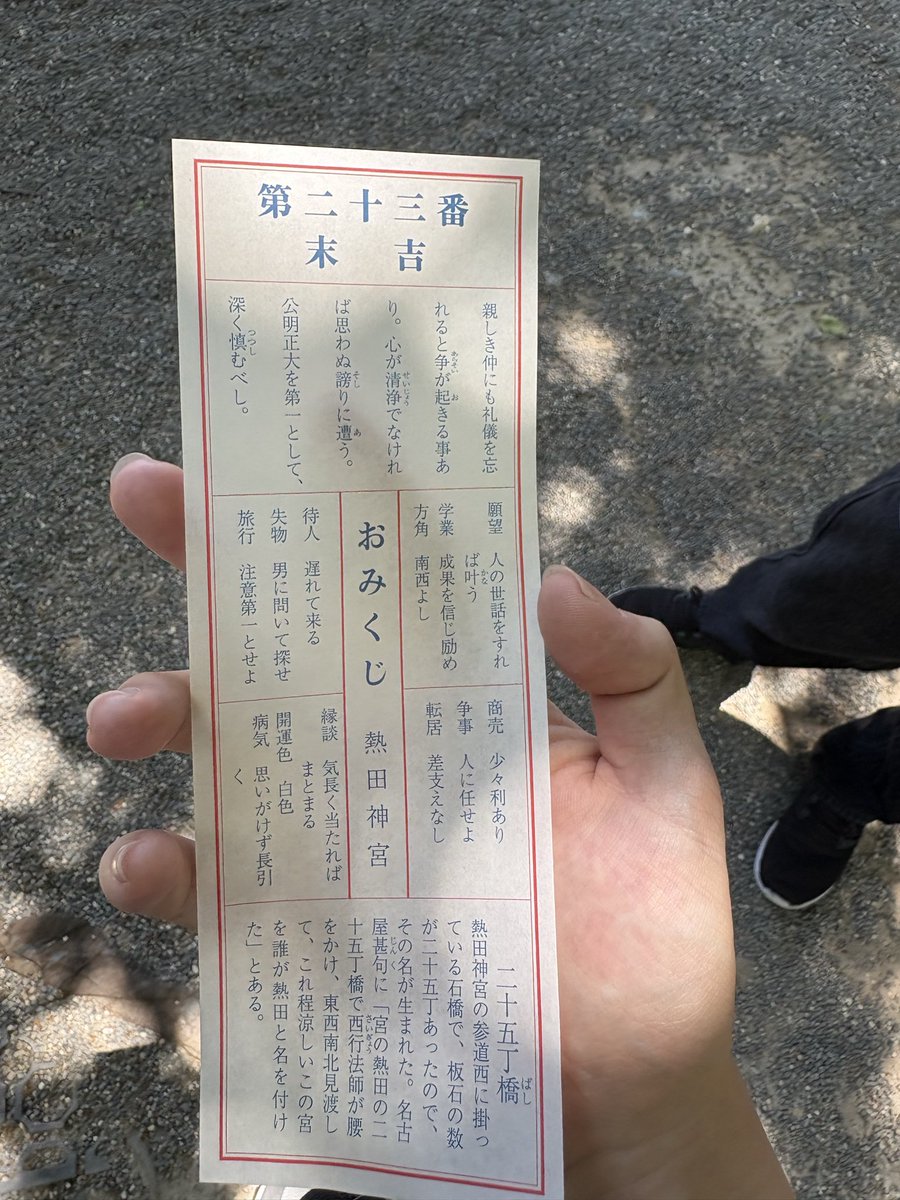 第二十三番
末吉
親しき仲にも礼儀を忘
れると争が起きる事あ
り。心が清浄でなけれ
ば思わぬ謗りに遭う。
公明正大を第一として、
深く慎むべし。
願望 人の世話をすれ
ば叶う
学業 成果を信じ励め
方角 南西よし
商売 少々利あり
争事 人に任せよ
転居 差支えなし
おみくじ 熱田神宮
待人 遅れて来る
失物 男に問いて探せ
旅行 注意第一とせよ
縁談 気長く当たれば
まとまる
開運色 白色
病気 思いがけず長引
く
二十五丁橋
熱田神宮の参道西に掛っ
ている石橋で、板石の数
が二十五丁あったので、
その名が生まれた。名古
屋甚句に「宮の熱田の二
十五丁橋で西行法師が腰
をかけ、東西南北見渡し
て、これ程涼しいこの宮
を誰が熱田と名を付け
た」とある。